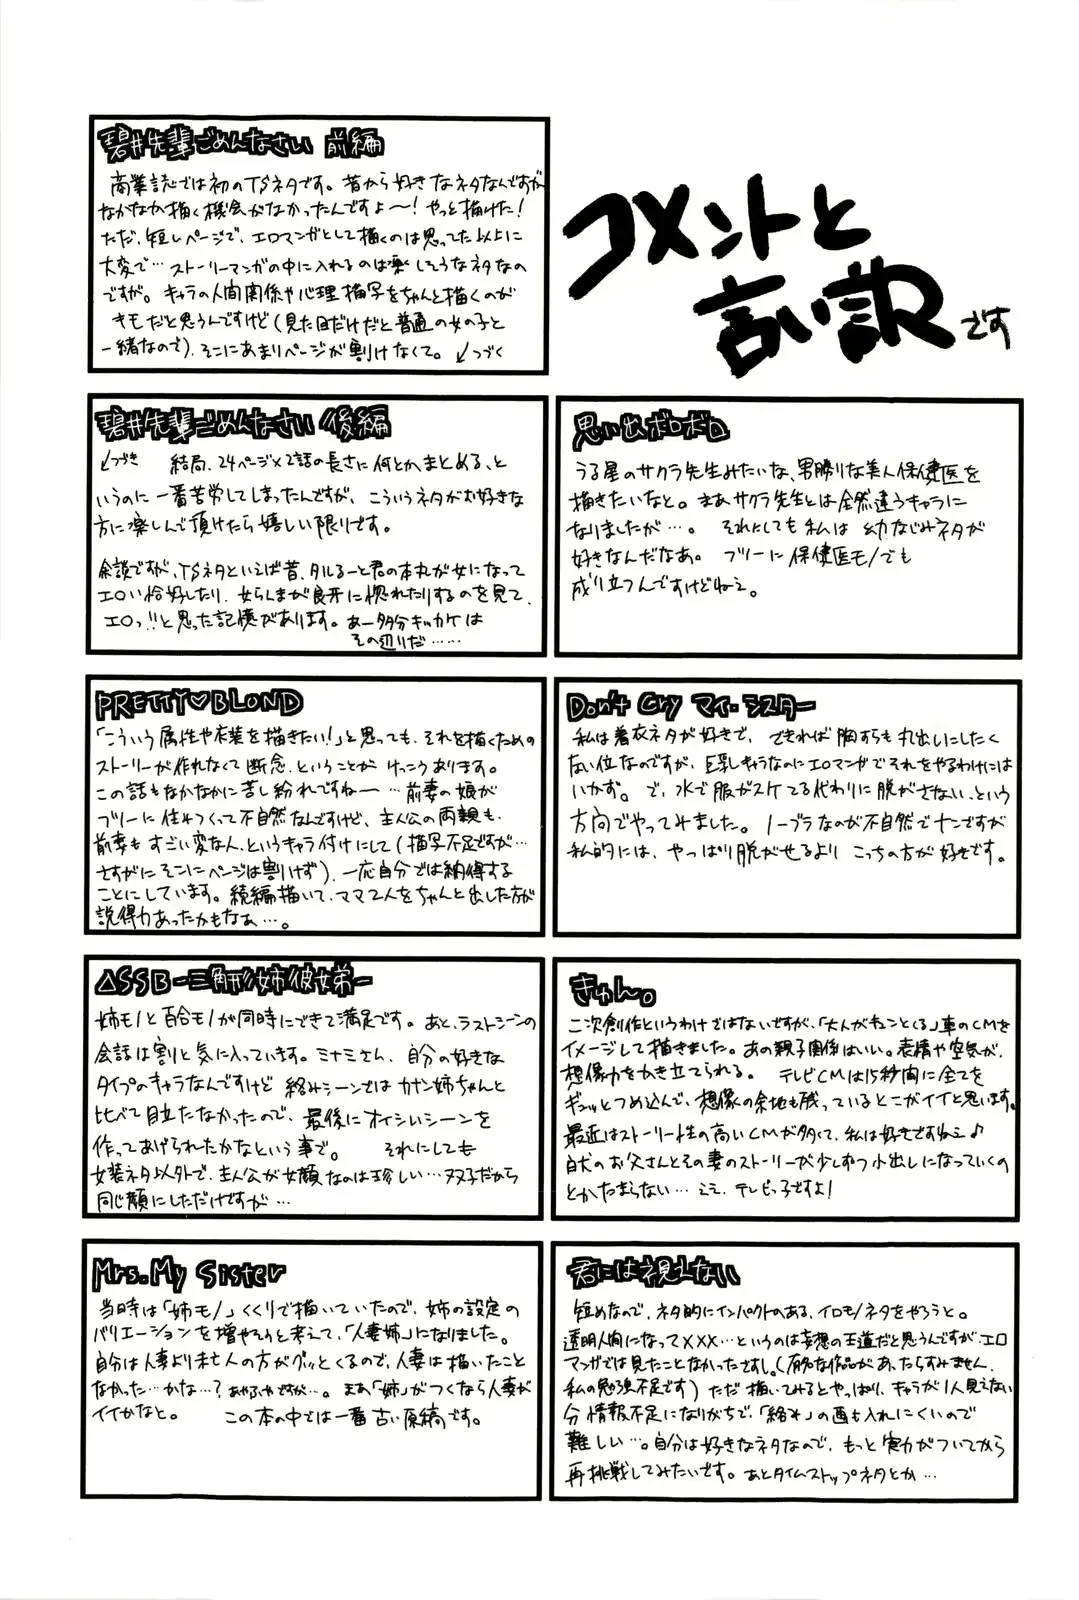 コメントと
言い訳です
碧井先輩ごめんなさい 前編
商業誌では初のTSネタです。昔から好きなネタなんですが
なかなか描く機会がなかったんですよ〜!やっと描けた!
ただ、短いページで、エロマンガとして描くのは思ってた以上に
大変で…ストーリーマンガの中に入れるのは楽しそうなネタなの
ですが。キャラの人間関係や心理描写をちゃんと描くのが
キモだと思うんですけど(見た目だけだと普通の女の子と
一緒なので)、そこにあまりページが割けなくて。↙つづく
碧井先輩ごめんなさい 後編
↙つづき 結局、24ページ×2話の長さに何とかまとめる、と
いうのに一番苦労してしまったんですが、こういうネタがお好きな
方に楽しんで頂けたら嬉しい限りです。
余談ですが、TSネタといえば昔、タルるート君の本丸が女になって
エロい恰好したり、女らんまが良牙に惚れたりするのを見て、
エロっ!!と思った記憶があります。あー多分キッカケは
その辺りだ……
思い出ボロボロ
うる星のサクラ先生みたいな、男勝りな美人保健医を
描きたいなと。まあサクラ先生とは全然違うキャラに
なりましたが…。それにしても私は幼なじみネタが
好きなんだなあ。フツーに保健医モノでも
成り立つんですけどねえ。
PRETTY♡BLOND
「こういう属性や衣装を描きたい!」と思っても、それを描くための
ストーリーが作れなくて断念、ということがけっこうあります。
この話もなかなかに苦し紛れですね〜…前妻の娘が
フツーに住みつくって不自然なんですけど、主人公の両親も、
前妻もすごい変な人、というキャラ付けにして(描写不足ですが…
さすがにそこにページは割けず)、一応自分では納得する
ことにしています。続編描いて、ママ2人をちゃんと出した方が
説得力あったかもなぁ…。
Don't Cry マイ・シスター
私は着衣ネタが好きで、できれば胸すらも丸出しにしたく
ない位なのですが、巨乳キャラなのにエロマンガでそれをやるわけには
いかず。で、水で服がスケてる代わりに脱がさない、という
方向でやってみました。ノーブラなのが不自然でナンですが
私的には、やっぱり脱がせるよりこっちの方が好きです。
△SSB-三角形姉彼女弟-
姉モノと百合モノが同時にできて満足です。あと、ラストシーンの
会話は割と気に入っています。ミナミさん、自分の好きな
タイプのキャラなんですけど絡みシーンではカナン姉ちゃんと
比べて目立たなかったので、最後にオイシいシーンを
作ってあげられたかなという事で。それにしても
女装ネタ以外で、主人公が女顔なのは珍しい…双子だから
同じ顔にしただけですが…
きゅん。
二次創作というわけではないですが、「大人がキュンとくる」車のCMを
イメージして描きました。あの親子関係はいい。表情や空気が、
想像力をかき立てられる。テレビCMは15秒間に全てを
ギュッとつめ込んで、想像の余地も残っているとこがイイと思います。
最近はストーリー性の高いCMが多くて、私は好きですねぇ♪
白犬のお父さんとその妻のストーリーが少しずつ小出しになっていくの
とかたまらない…ええ、テレビっ子ですよ!
Mrs.My Sister
当時は「姉モノ」くくりで描いていたので、姉の設定の
バリエーションを増やそうと考えて、「人妻姉」になりました。
自分は人妻より未亡人の方がグッとくるので、人妻は描いたこと
なかった…かな…?あやふやですが…。まあ「姉」がつくなら人妻が
イイかなと。この本の中では一番古い原稿です。
君には視えない
短めなので、ネタ的にインパクトのある、イロモノネタをやろうと。
透明人間になってXXX…というのは妄想の王道だと思うんですが、エロ
マンガでは見たことなかったですし。(有名な作品があったらすみません、
私の勉強不足です)ただ描いてみるとやっぱり、キャラが1人見えない
分情報不足になりがちで、「絡み」の画も入れにくいので
難しい…。自分は好きなネタなので、もっと実力がついてから
再挑戦してみたいです。あとタイムストップネタとか…